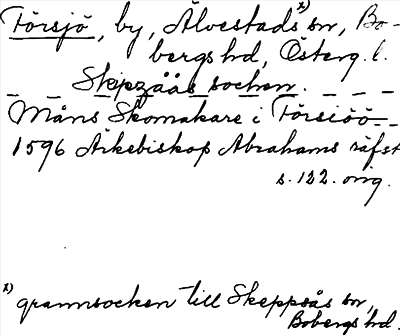 Försjö, by, Älvestads x) sn, Bo-
bergs hd, Österg. l.
_ _ Skepzåås sochen. _ _ _
Måns Skomakare i Försiöö _
1596 Ärkebiskop Abrahams räfst
s. 132. orig.
x) grannsocken till Skeppsås sn,
Bobergs hd.